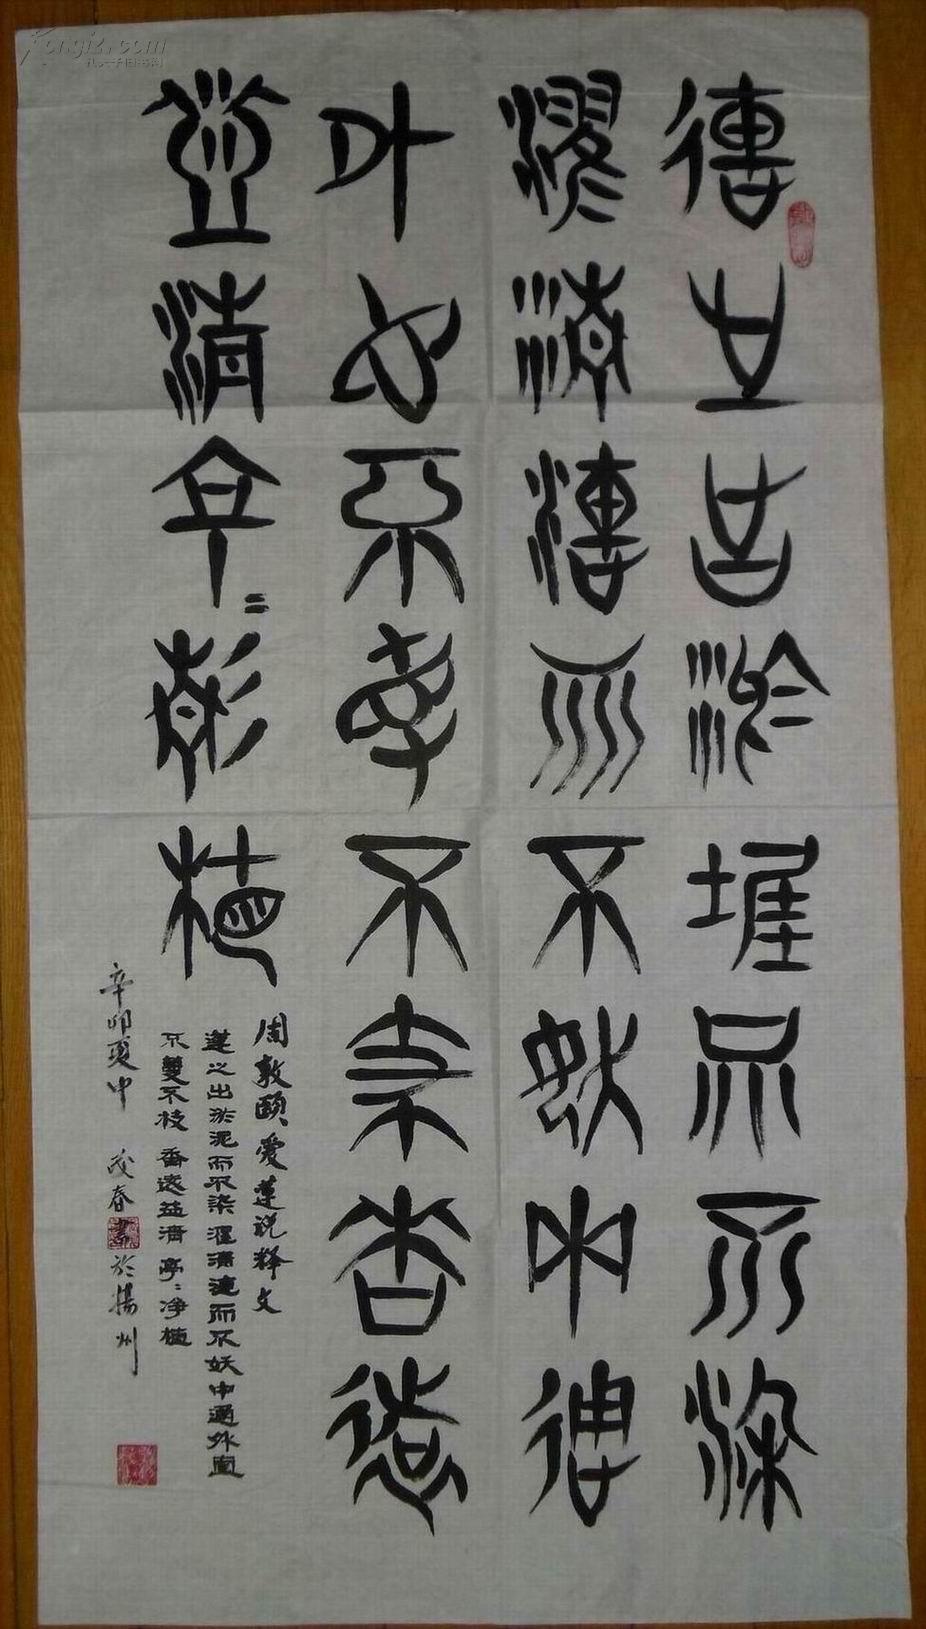 蓮之出淤泥而不染
濯清漣而不妖中通
外直不蔓不枝香遠
益清亭〻淨植
周敦頤愛蓮説釋文
蓮之出淤泥而不染濯清漣而不妖中通外直
不蔓不枝香遠益清亭〻净植
辛卯夏中 春書於揚州
Kongfz.com
孔夫子旧书网